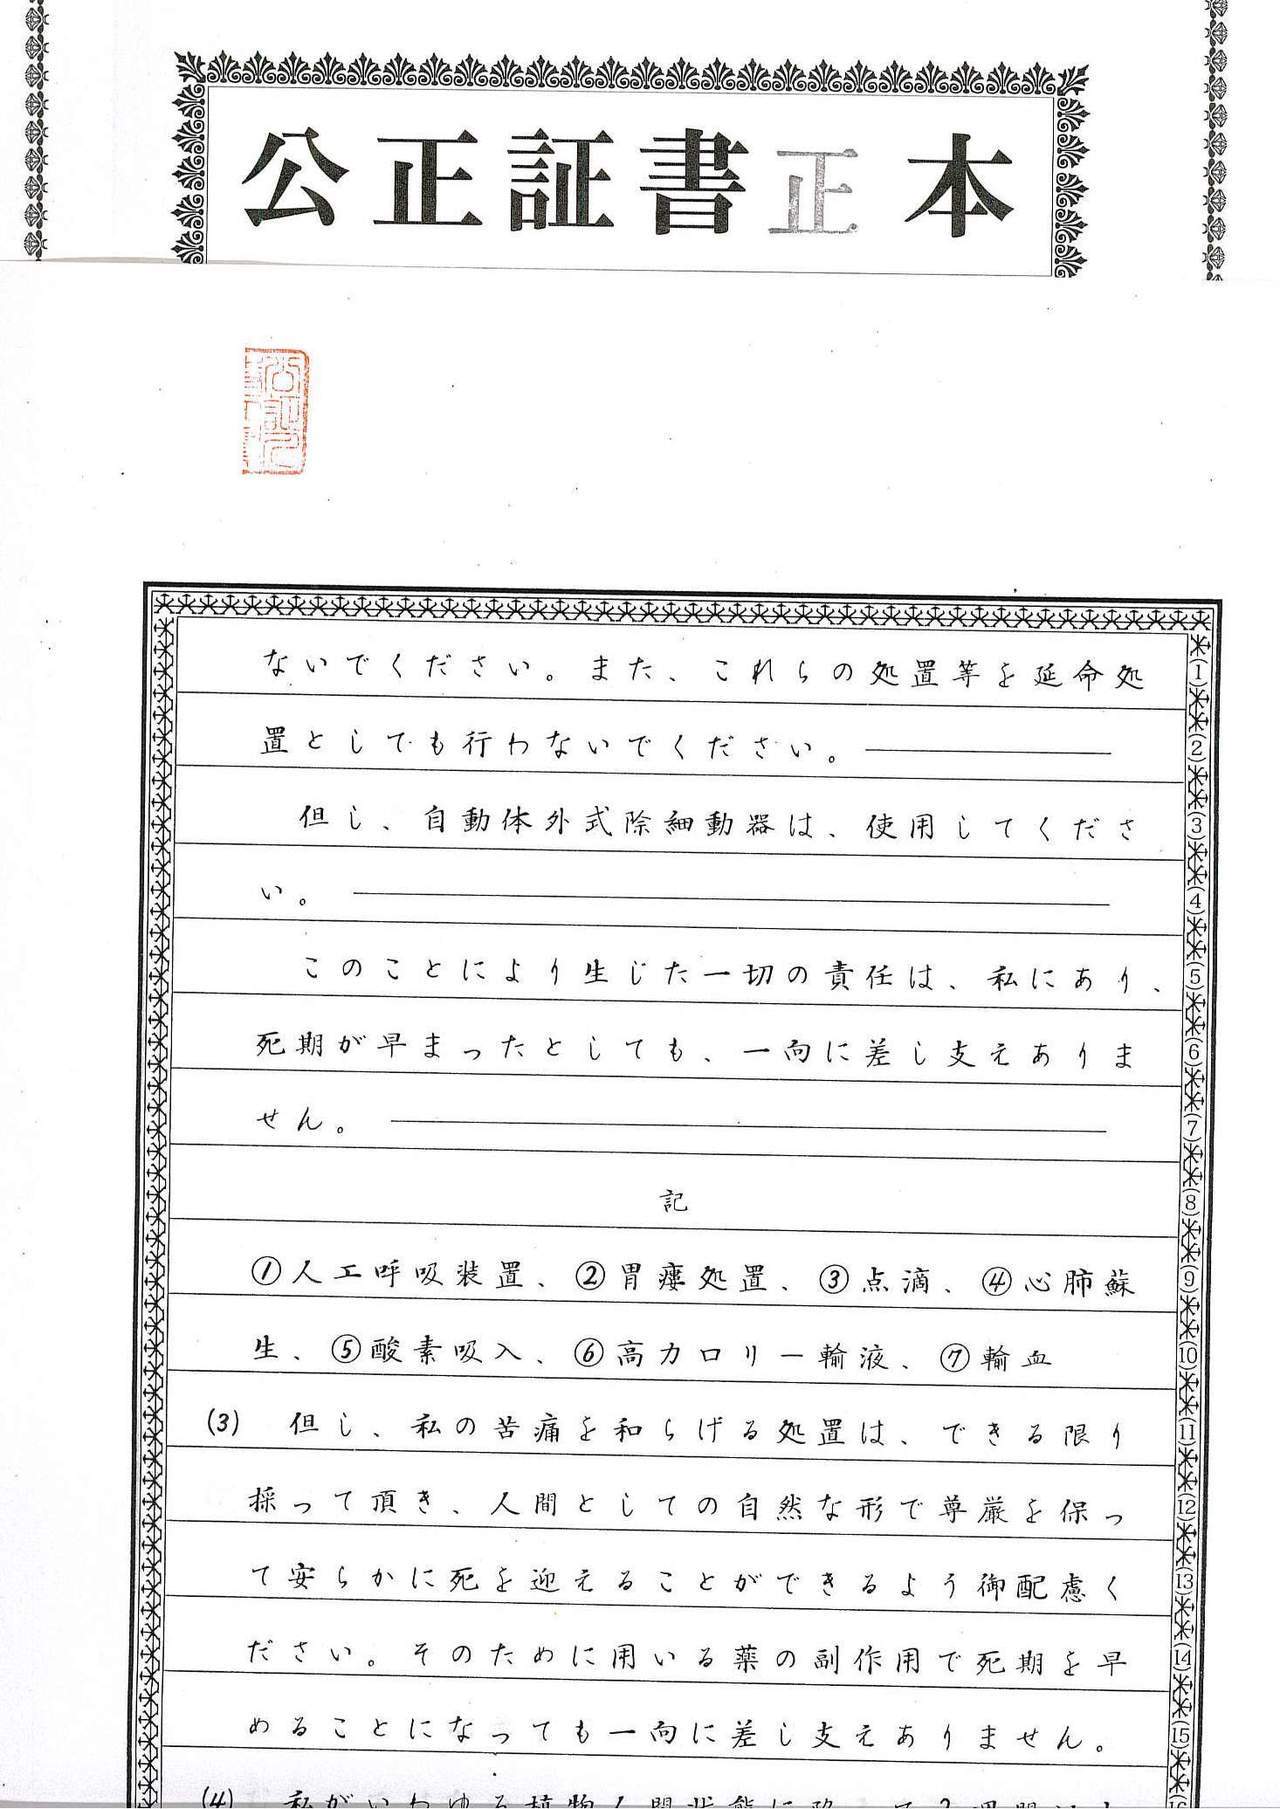 公正証書正本
ないでください。また、これらの処置等を延命処
(1)
置としても行わないでください。
(2)
但し、自動体外式除細動器は、使用してくださ
(3)
い。
(4)
このことにより生じた一切の責任は、私にあり、
(5)
死期が早まったとしても、一向に差し支えありま
(6)
せん。
(7)
記
(8)
①人工呼吸装置、②胃瘻処置、③点滴、④心肺蘇
(9)
生、⑤酸素吸入、⑥高カロリー輸液、⑦輸血
(10)
(3) 但し、私の苦痛を和らげる処置は、できる限り
(11)
採って頂き、人間としての自然な形で尊厳を保っ
(12)
て安らかに死を迎えることができるよう御配慮く
(13)
ださい。そのために用いる薬の副作用で死期を早
(14)
めることになっても一向に差し支えありません。
(15)
(4) 私がいわゆる植物人間状態に陥って2週間